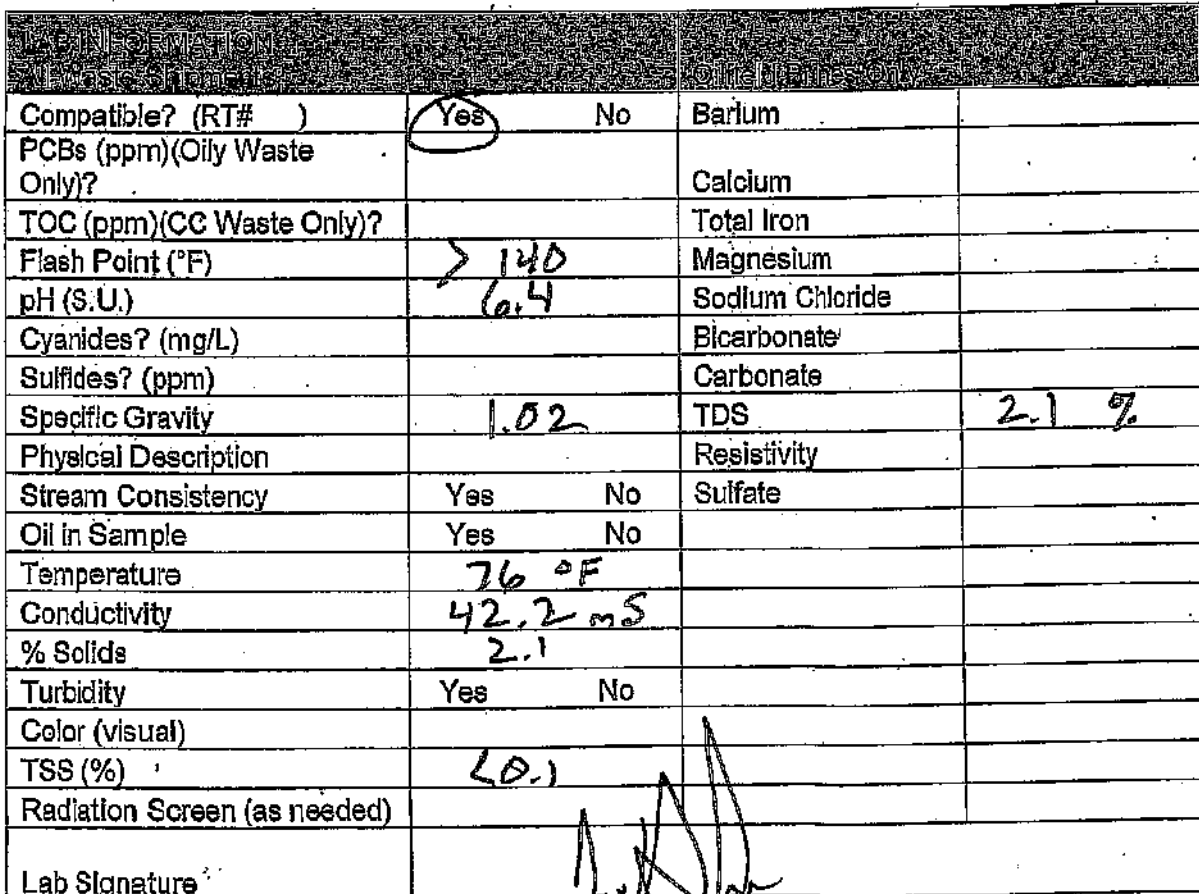 LAB INFORMATION
All Waste Shipments Oilfield Brines Only
Compatible? (RT# ) Yes No Barium
PCBs (ppm)(Oily Waste
Only)? Calcium
TOC (ppm)(CC Waste Only)? Total Iron
Flash Point (°F) > 140 Magnesium
pH (S.U.) 6.4 Sodium Chloride
Cyanides? (mg/L) Bicarbonate
Sulfides? (ppm) Carbonate
Specific Gravity 1.02 TDS 2.1 %
Physical Description Resistivity
Stream Consistency Yes No Sulfate
Oil in Sample Yes No
Temperature 76 °F
Conductivity 42.2 mS
% Solids 2.1
Turbidity Yes No
Color (visual)
TSS (%) <0.1
Radiation Screen (as needed)
Lab Signature